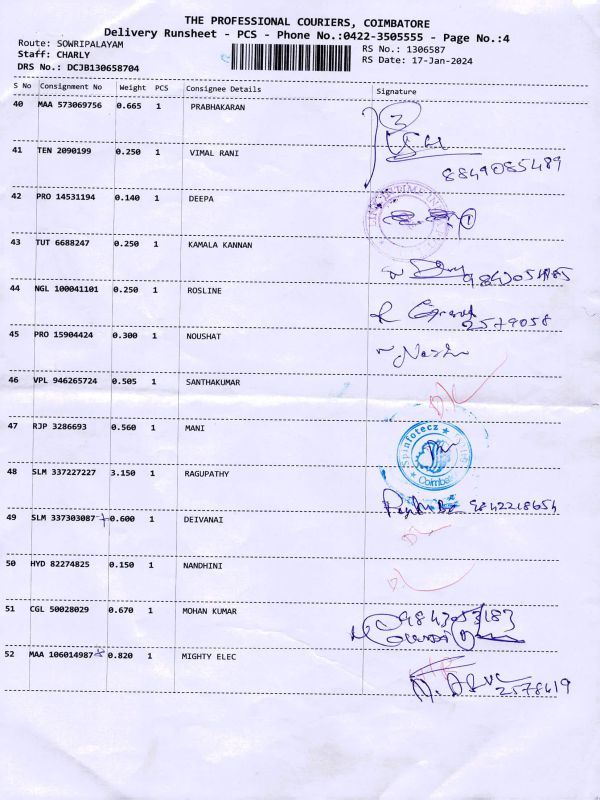 THE PROFESSIONAL COURIERS, COIMBATORE
Delivery Runsheet - PCS - Phone No.:0422-3505555 - Page No.:4
Route: SOWRIPALAYAM RS No.: 1306587
Staff: CHARLY RS Date: 17-Jan-2024
DRS No.: DCJB130658704
S No Consignment No Weight PCS Consignee Details Signature
40 MAA 573069756 0.665 1 PRABHAKARAN 3
41 TEN 2090199 0.250 1 VIMAL RANI 8849085489
42 PRO 14531194 0.140 1 DEEPA 1
43 TUT 6688247 0.250 1 KAMALA KANNAN
44 NGL 100041101 0.250 1 ROSLINE 2579058
45 PRO 15904424 0.300 1 NOUSHAT
46 VPL 946265724 0.505 1 SANTHAKUMAR
47 RJP 3286693 0.560 1 MANI
48 SLM 337227227 3.150 1 RAGUPATHY 9842218654
49 SLM 337303087 0.600 1 DEIVANAI
50 HYD 82274825 0.150 1 NANDHINI
51 CGL 50028029 0.670 1 MOHAN KUMAR
52 MAA 106014987 0.820 1 MIGHTY ELEC 2578419